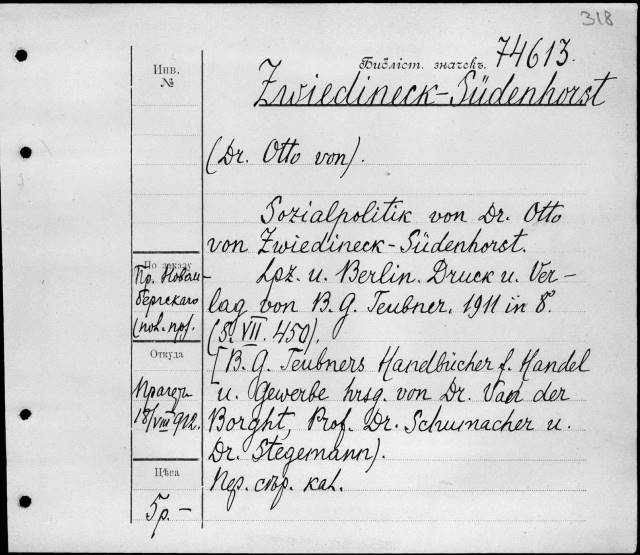 318
Инв.
№
Библіот. значекъ.
74613.
Zwiedineck-Südenhorst
(Dr. Otto von).
Sozialpolitik von Dr. Otto
von Zwiedineck-Südenhorst.
Lpz. u. Berlin. Druck u. Ver-
lag von B. G. Teubner. 1911 in 8°.
(S. VII. 450).
[B. G. Teubners Handbücher f. Handel
u. Gewerbe hrsg. von Dr. Van der
Borght, Prof. Dr. Schumacher u.
Dr. Stegemann).
Пер. стр. кал.
По заказу
Пр. Новом-
бергскаго
Откуда
18/VIII 912.
Цѣна
5р. -